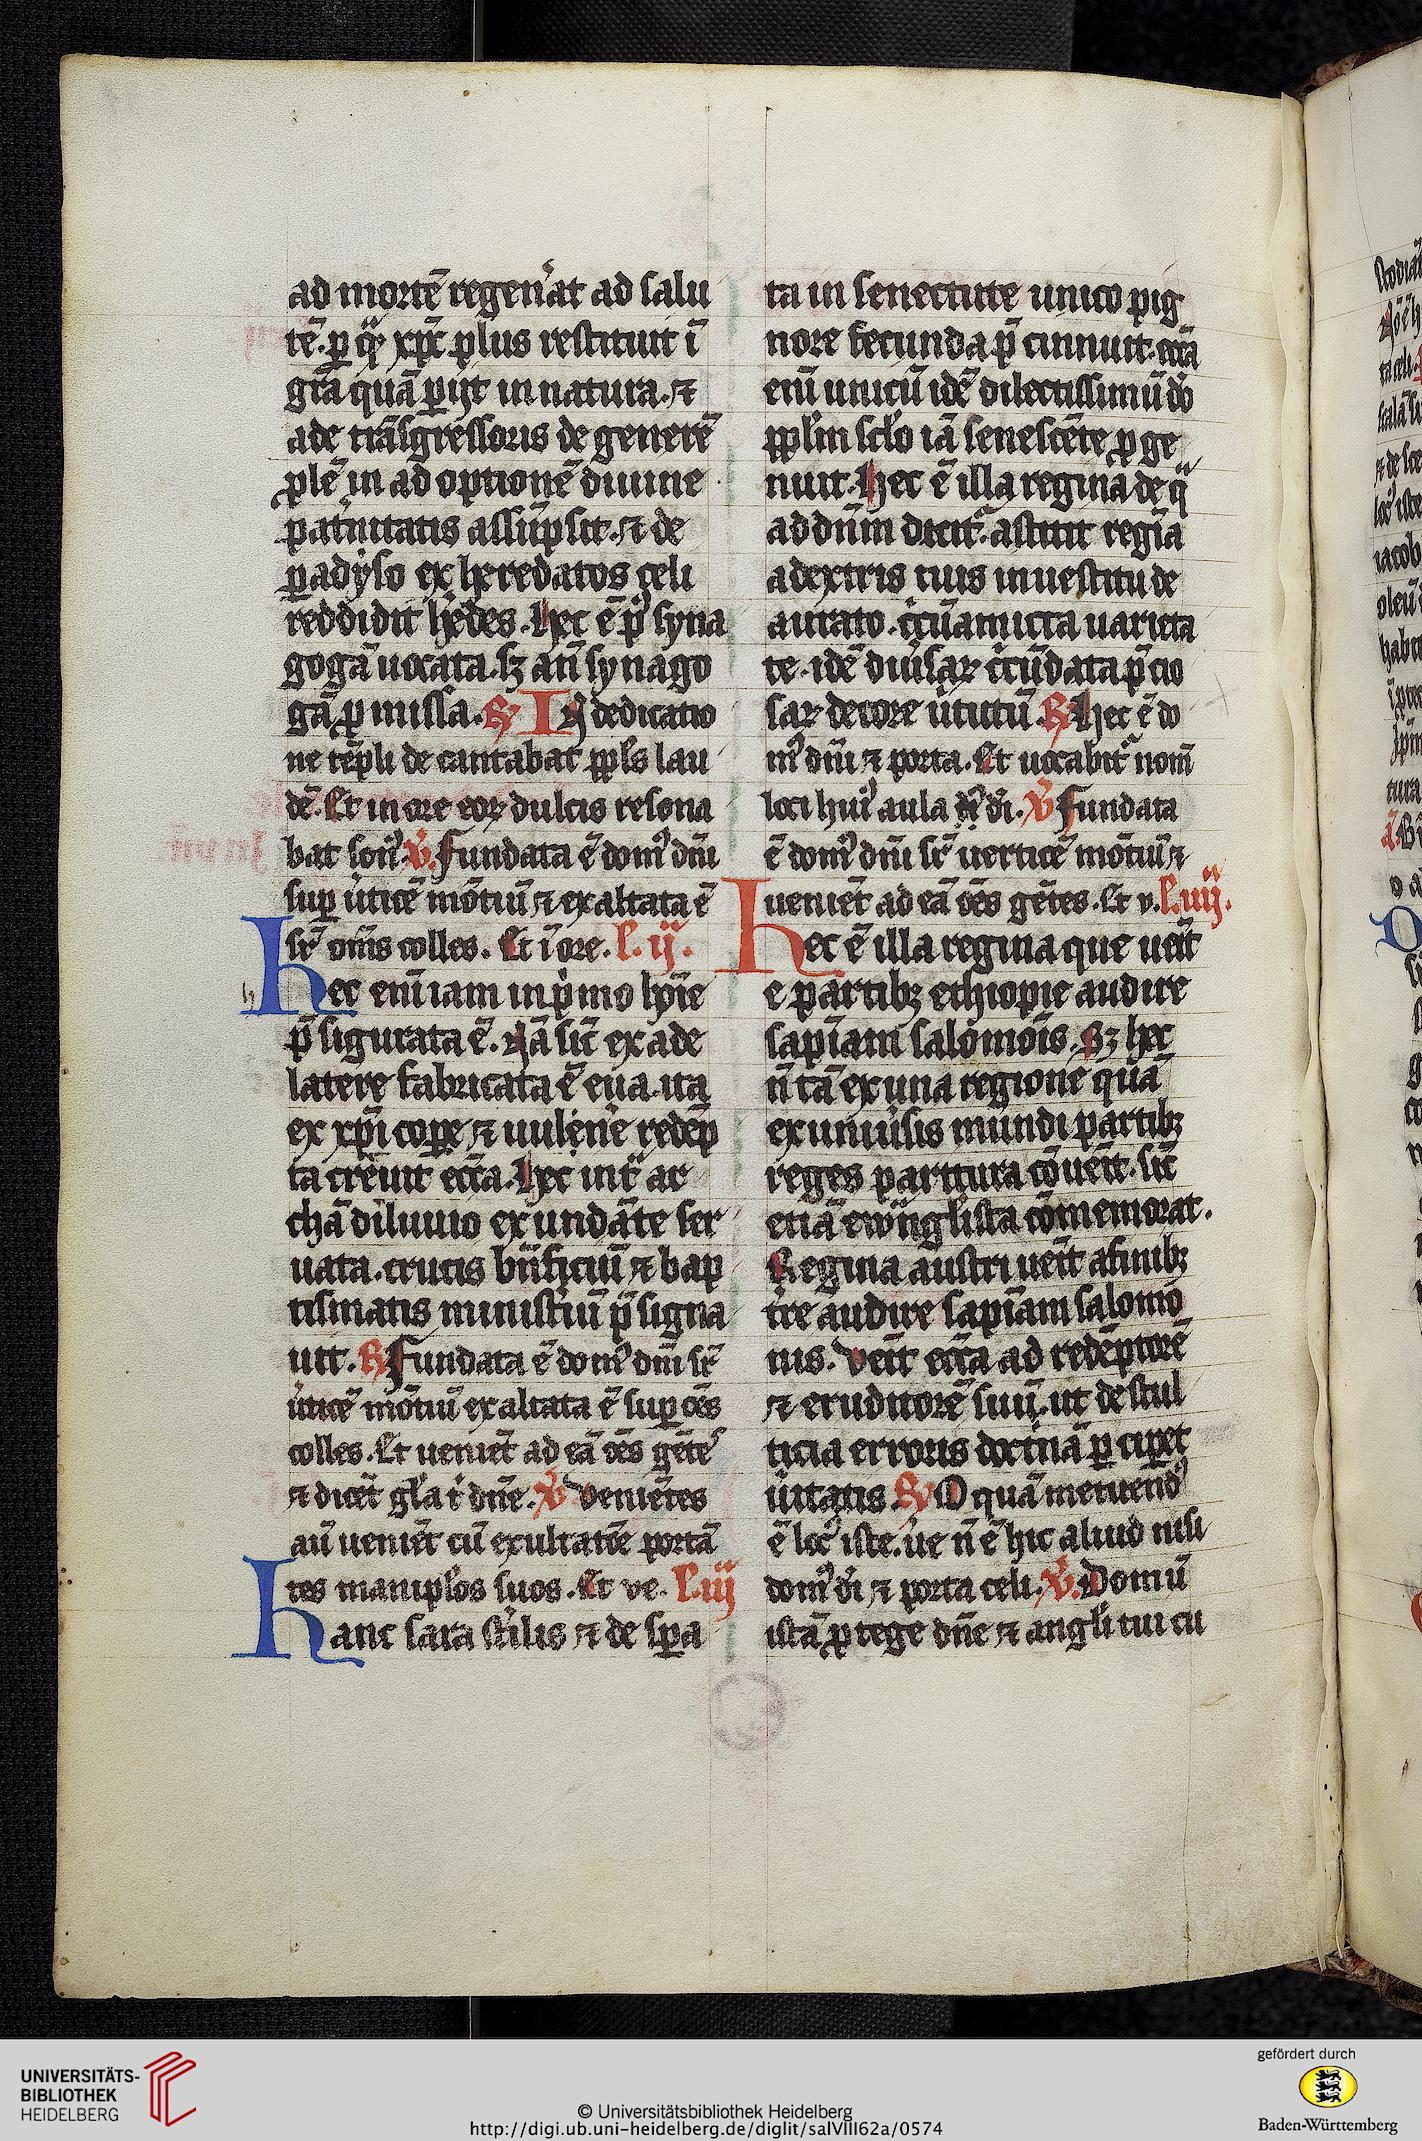 ad mortē regen̄at ad salu
tē. ꝑ q̄ xp̄c plus restituit ī
gr̄a quā ꝑijt in natura. ⁊
ade trāsgressoris de genere
plē in adoptionē diuine
pat̄nitatis assūpsit. ⁊ de
ꝑadyso exheredatos celi
reddidit h̄edes. Hec ē pͥ syna
gogā uocata. sꝫ an̄ synago
gā ꝓmissa. ℟ In dedicatio
ne tēpli decantabat ppl̄s lau
dē. Et in ore eoꝝ dulcis resona
bat sonꝰ. ℣. Fundata ē domꝰ dn̄i
suꝑ ūticē mōtiū ⁊ exaltata ē
sr̄ om̄s colles. Et ī ore. L. ij.
h
Hec enī iam in pͥmo hoīe
p̄figurata ē. Nā sic̄ ex ade
latere fabricata ē eua. ita
ex xp̄i corꝑe ⁊ uulēne redēp
ta creuit ecc̄a. Hec int̄ ar
chā diluuio exundāte ser
uata. crucis bn̄ficiū ⁊ bap
tismatis minist̄iū p̄signa
uit. ℟ Fundata ē domꝰ dn̄i sr̄
ūticē mōtiū exaltata ē suꝑ oēs
colles. Et ueniēt ad eā oēs gētes
⁊ dicēt gl̄a t̄ dn̄e. ℣ Veniētes
au̅ ueniēt cū exultatōe portā
tes manipl̄os suos. Et ve. L. iij
Hanc sara st̄ilis ⁊ desꝑa
ta in senectute unico pig
nore fecunda p̄cinnuit. ecc̄a
eni̅ unicū idē dilectissimū dō
ppl̄m scl̄o iā senescēte ꝓge
nuit. Hec ē illa regina de q̄
ad dn̄m dicit̄. astitit regīa
a dextris tuis in uestitu de
aurato. c̄cūamicta uarieta
te. idē diūsaꝝ c̄cūdata p̄cio
saꝝ decore ūtutū. ℟ Hec ē do
mꝰ dn̄i ⁊ porta. Et uocabit̄ nom̄
loci huiꝰ aula dn̄i dei. ℣ Fundata
ē domꝰ dn̄i sr̄ uerticē mōtiū ⁊
ueniēt ad eā oēs gētes. Et v. L. iiij.
Hec ē illa regina que uen̄it
e partibꝫ ethiopie audire
sapīam salomōis. Sꝫ hec
n̄ tā ex una regione quā
ex uniūsis mundi partibꝫ
reges paritura cōuēit. sic̄
etiā ewn̄gl̄ista cōmemorat.
Regina austri uēit a finibꝫ
tr̄e audire sapīam salomo
nis. Vēit ecc̄a ad redēptorē
⁊ eruditorē suū. ut de stul
ticia erroris doctinā ꝑciꝑet
ūitatis ℟ O quā metuendꝰ
ē locꝰ iste. ūe n̄ ē hic aliud nisi
domꝰ dei ⁊ porta celi. ℣. Domū
istā ꝓtege dn̄e ⁊ angl̄i tui cu
UNIVERSITÄTS-
BIBLIOTHEK
HEIDELBERG
© Universitätsbibliothek Heidelberg
http://digi.ub.uni-heidelberg.de/diglit/salVIII62a/0574
gefördert durch
Baden-Württemberg